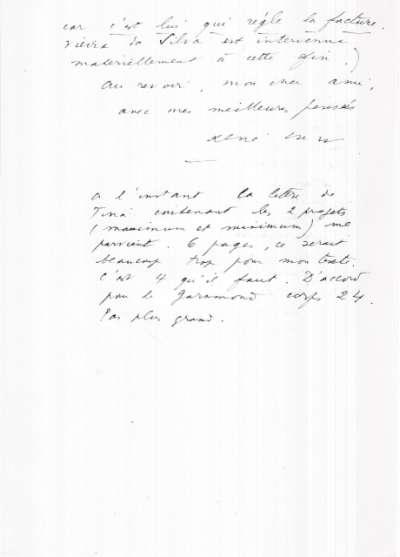 car c'est lui qui règle la facture.
Vieira da Silva est intervenue
matériellement à cette fin.)
Au revoir, mon cher ami,
avec mes meilleures pensées
René Char
A l'instant la lettre de
Tina contenant les 2 projets
(maximum et minimum) me
parvient. 6 pages, ce serait
beaucoup trop pour mon texte.
C'est 4 qu'il faut. D'accord
pour le Garamond corps 24.
Pas plus grand.